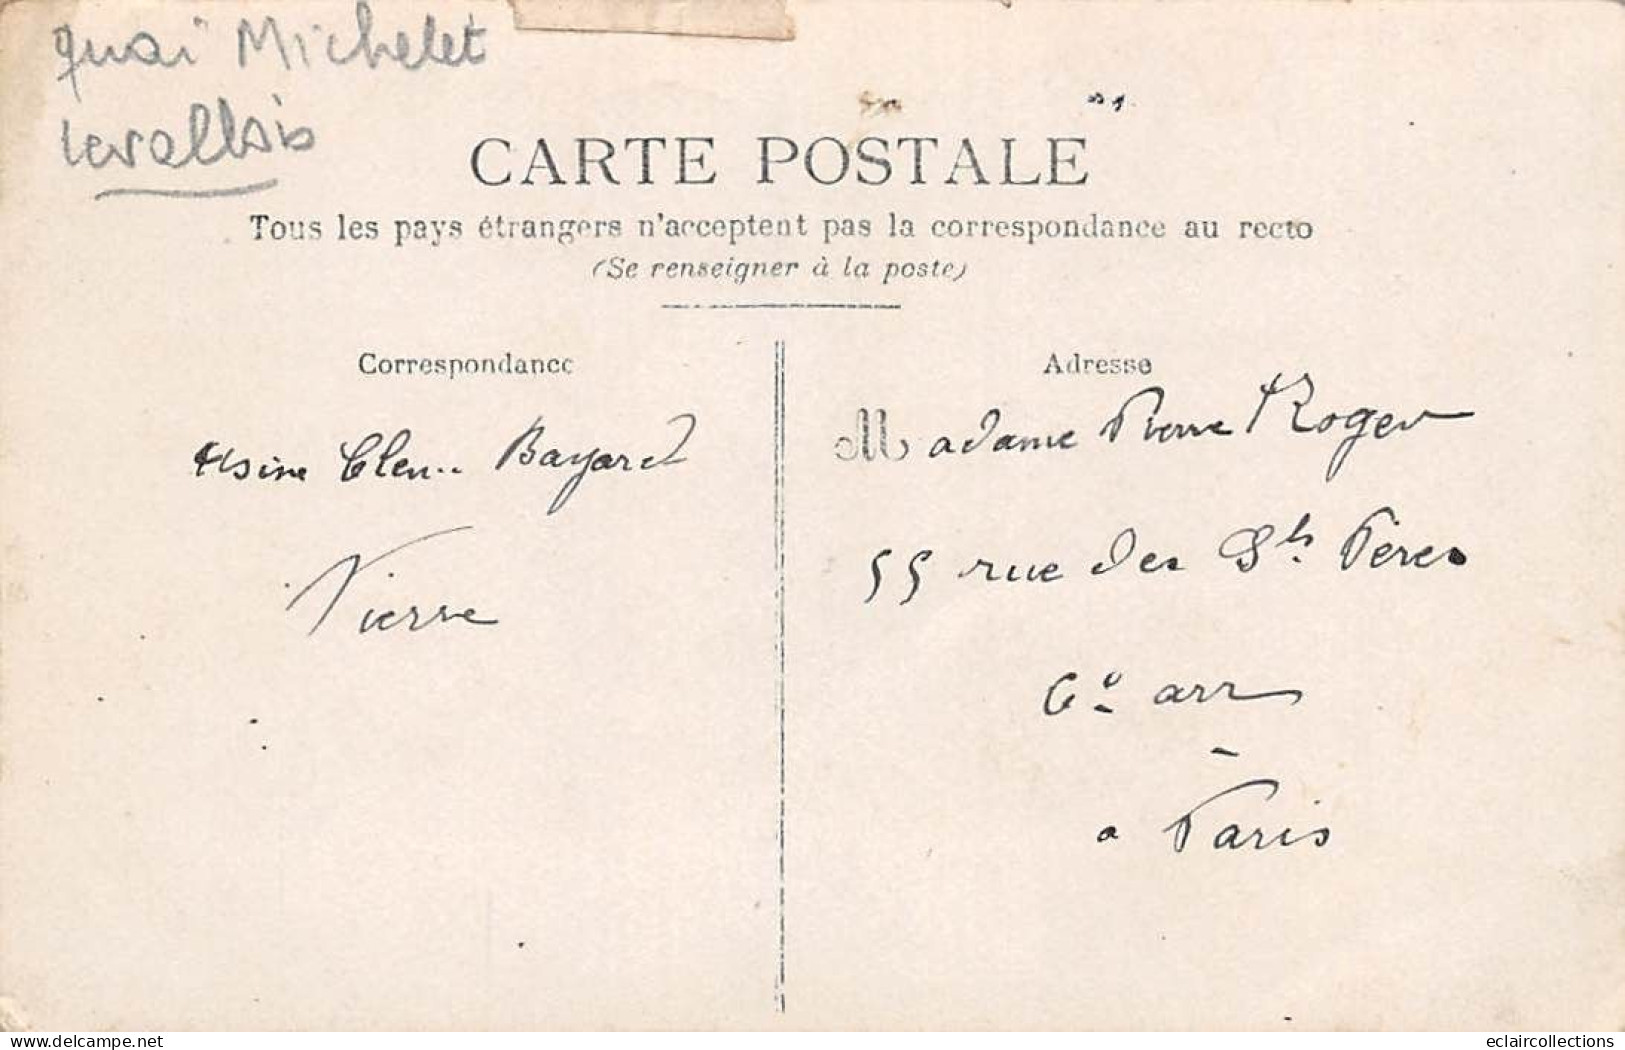 quai Michelet
Levallois
CARTE POSTALE
Tous les pays étrangers n'acceptent pas la correspondance au recto
(Se renseigner à la poste)
Correspondance
Usine Clem. Bayard
Pierre
Adresse
Madame Pierre Roger
55 rue des Sts Pères
6e arr
a Paris
www.delcampe.net
eclaircollections